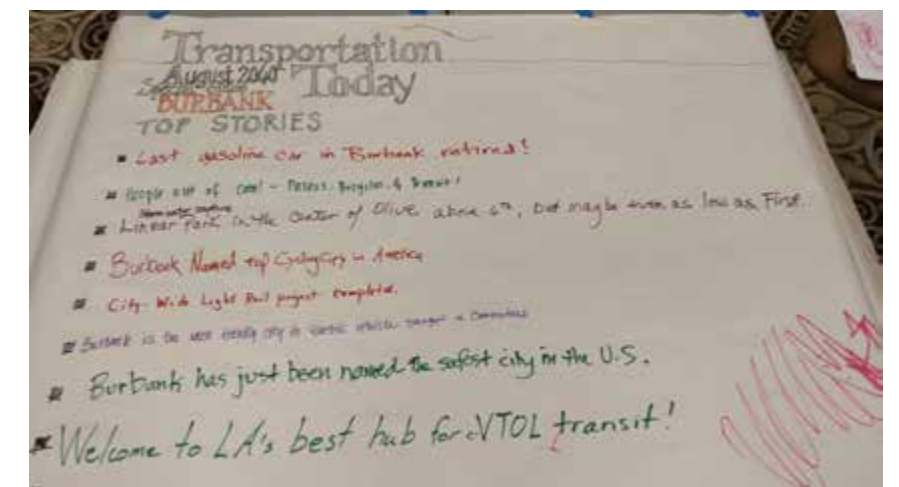 Transportation
August 2040 Today
BURBANK
TOP STORIES
Last gasoline car in Burbank retired!
People out of
Linear Park in the Center of Olive above 6th, but maybe even as low as First.
Burbank Named top Cycling City in America
City-Wide Light Rail project completed.
Burbank is the
Burbank has just been named the safest city in the U.S.
Welcome to LA's best hub for eVTOL transit!